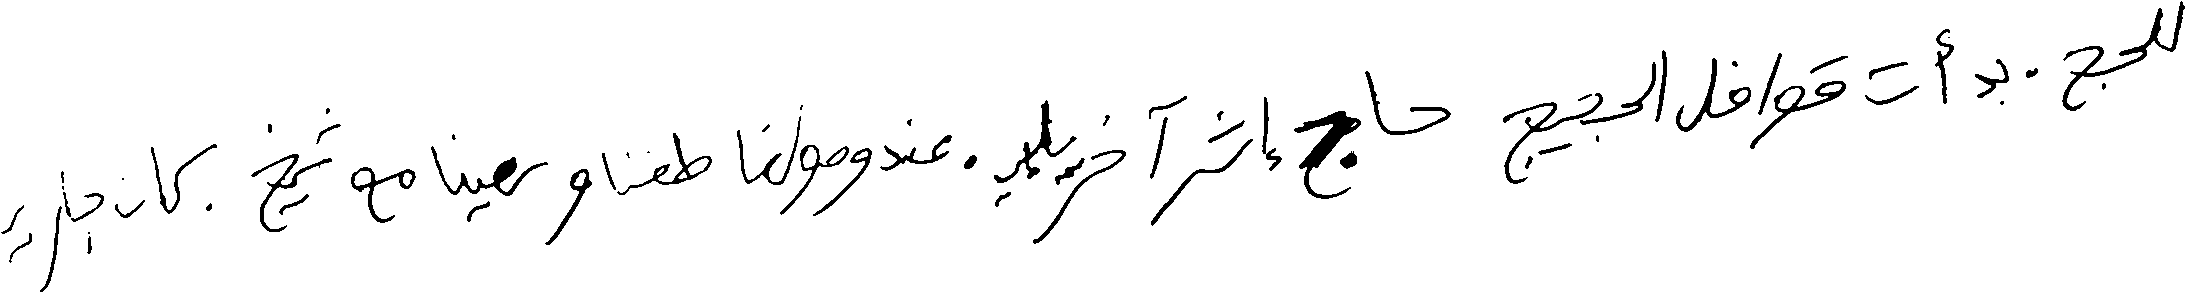 للحج . بدأت قوافل الحجيج حاج إثر آخر يلبي . عند وصولنا طفنا وسعينا مع شيخ . كانت جارية